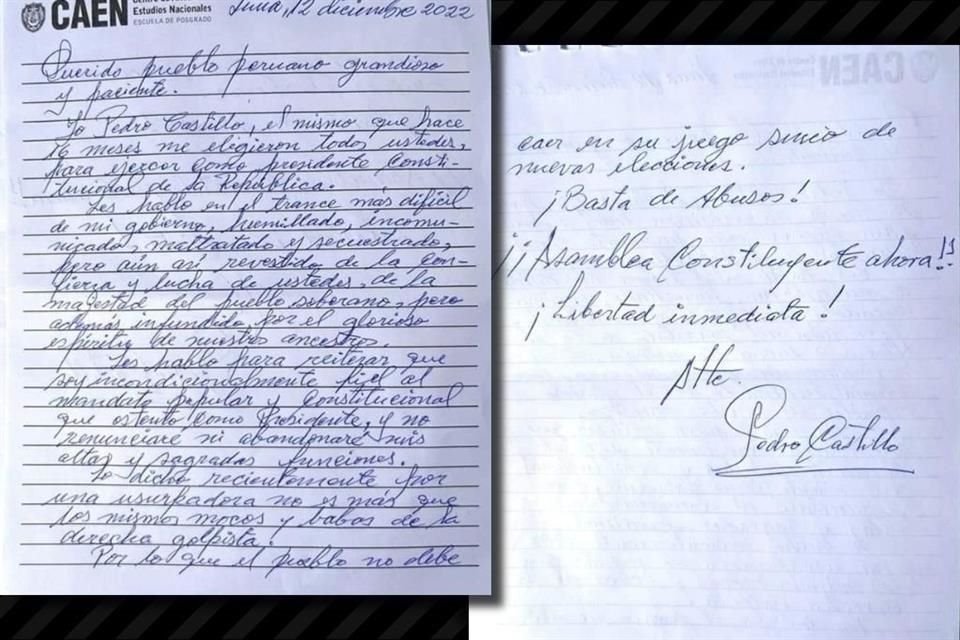 CAEN
Estudios Nacionales
ESCUELA DE POSGRADO
Lima, 12 diciembre 2022
Querido pueblo peruano grandioso
y paciente.
Yo Pedro Castillo, el mismo que hace
16 meses me eligieron todos ustedes,
para ejercer como presidente Consti-
tucional de la República.
Les hablo en el trance más difícil
de mi gobierno, humillado, incomu-
nicado, maltratado y secuestrado,
pero aún así revestido de la con-
fianza y lucha de ustedes, de la
majestad del pueblo soberano, pero
además infundido por el glorioso
espíritu de nuestros ancestros.
Les hablo para reiterar que
soy incondicionalmente fiel al
mandato popular y Constitucional
que ostento como Presidente, y no
renunciaré ni abandonaré mis
altas y sagradas funciones.
Lo dicho recientemente por
una usurpadora no es más que
los mismos mocos y babas de la
derecha golpista!
Por lo que el pueblo no debe
caer en su juego sucio de
nuevas elecciones.
¡Basta de Abusos!
¡¡Asamblea Constituyente ahora!!
¡Libertad inmediata!
Atte.
Pedro Castillo